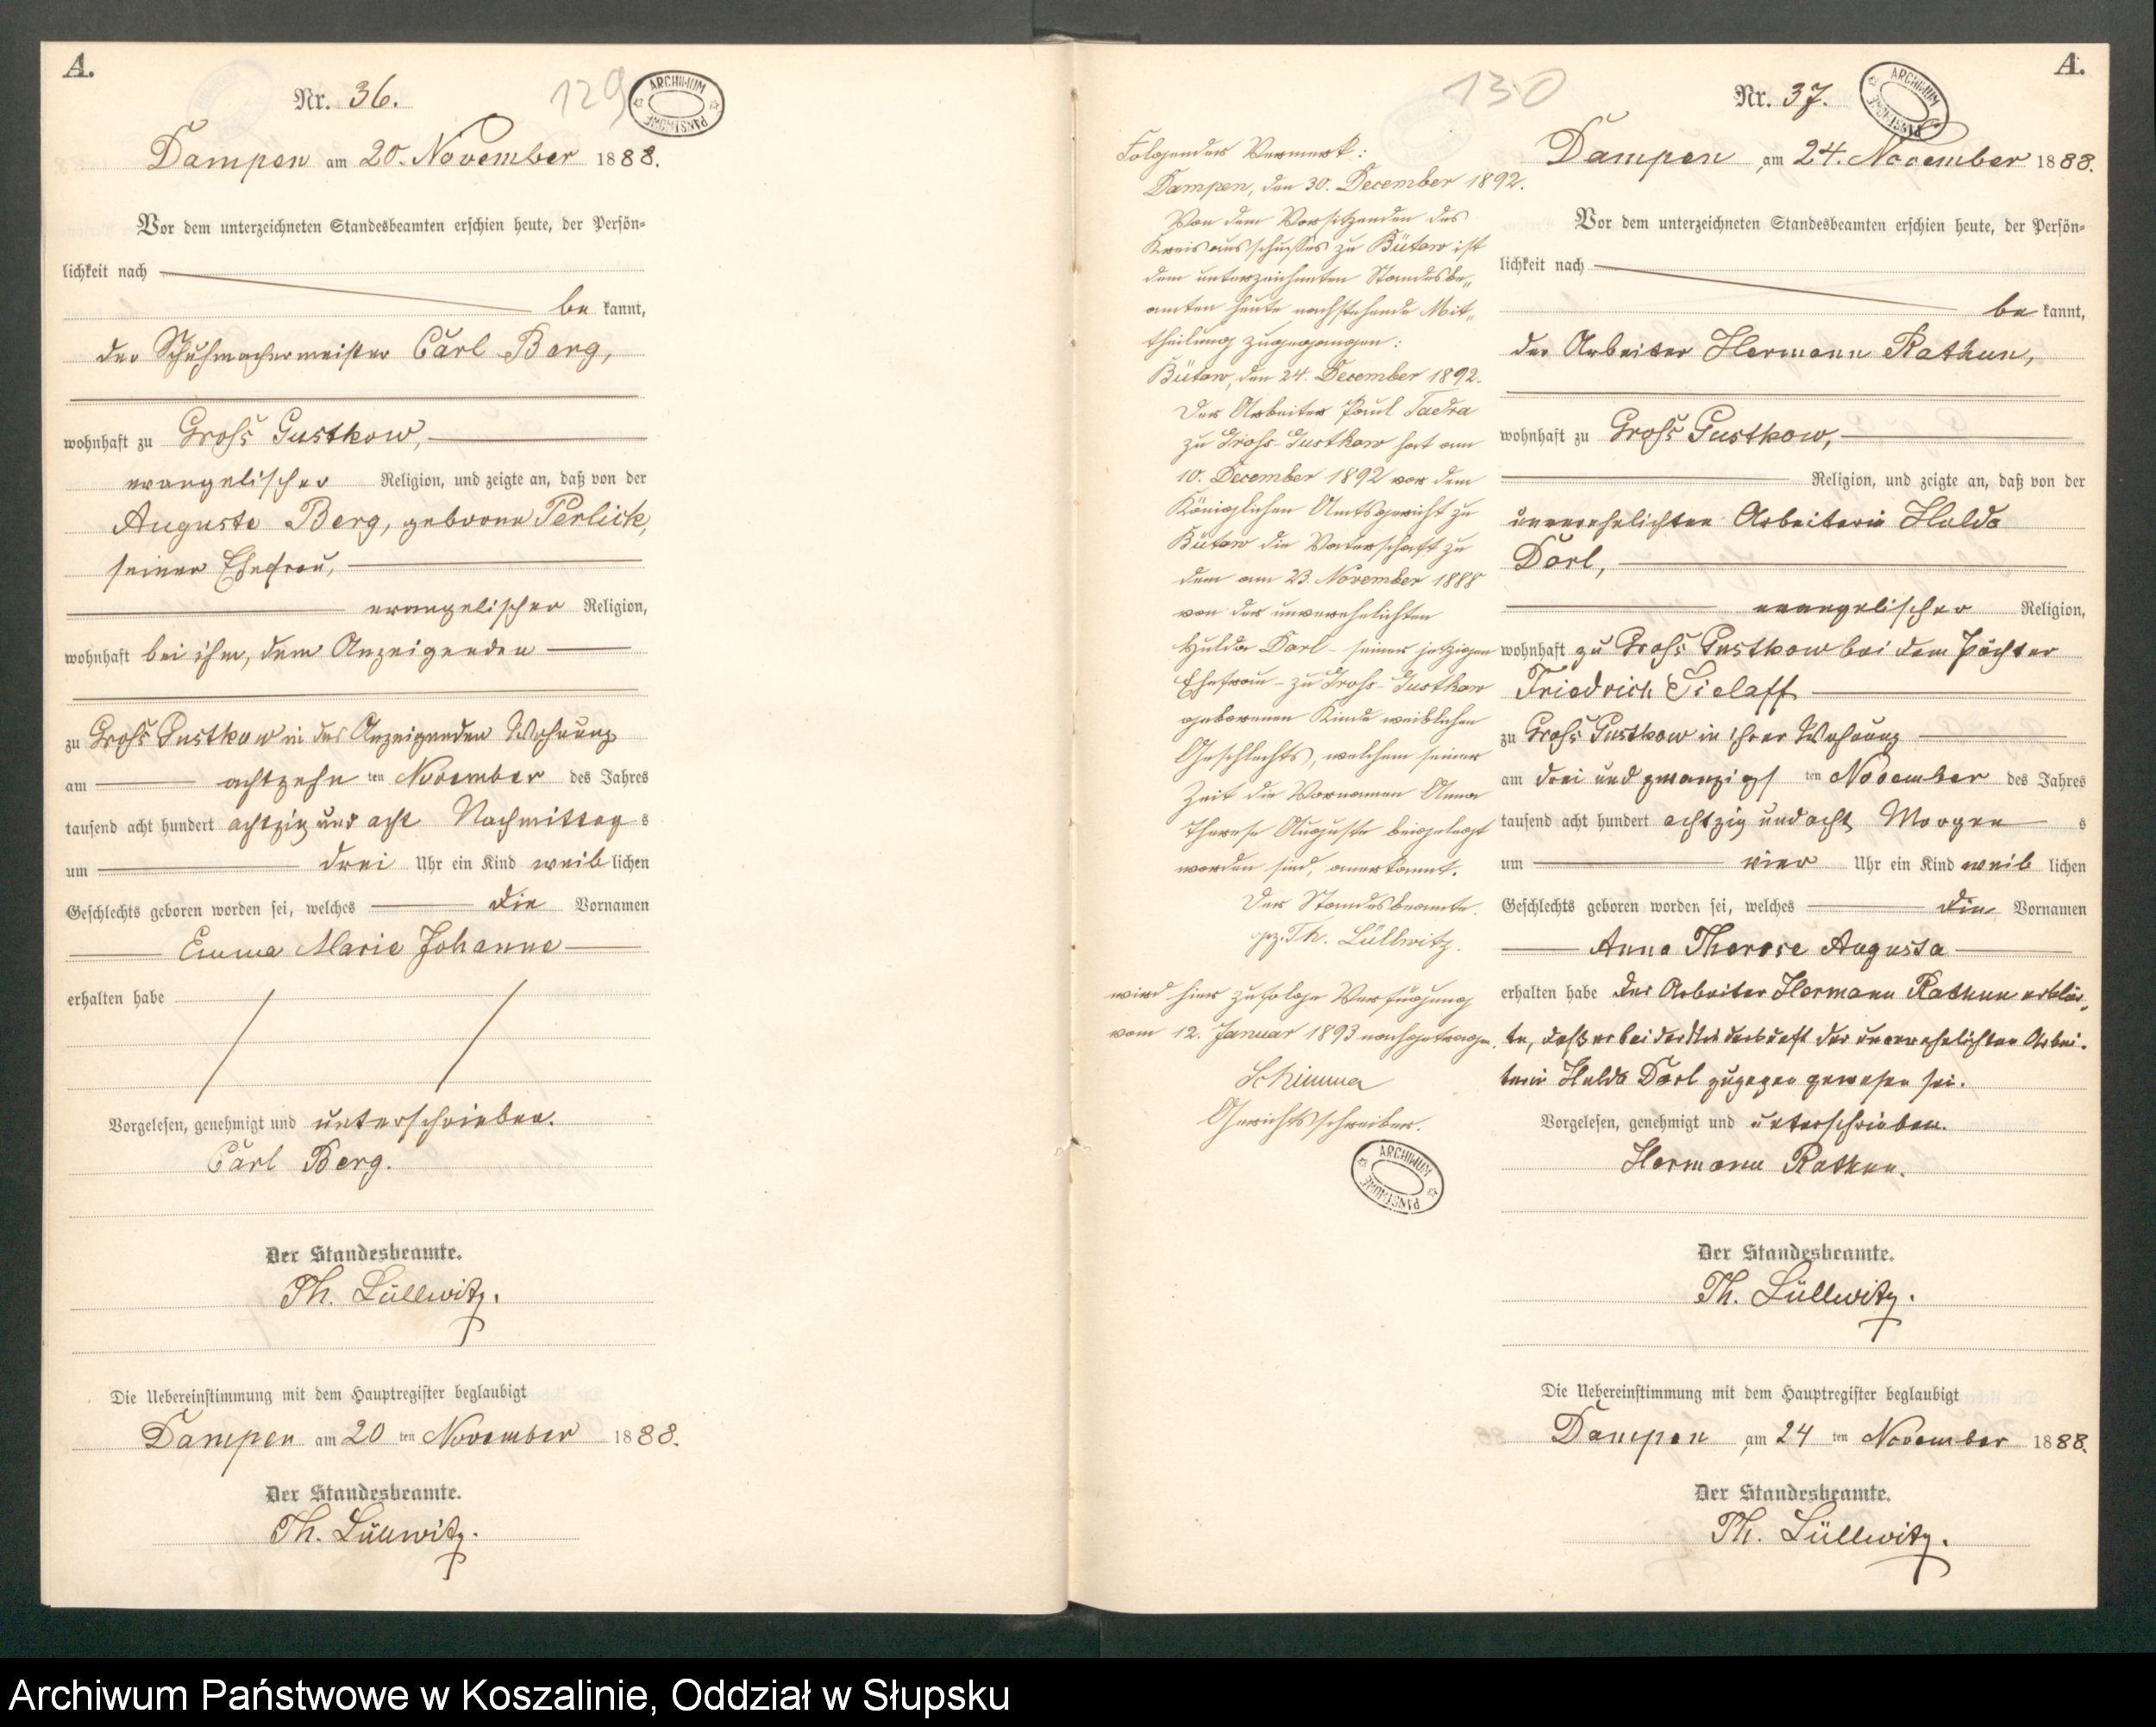 A.
Nr. 36.
129
ARCHIWUM PAŃSTWOWE
Dampen am 20. November 1888.
Vor dem unterzeichneten Standesbeamten erschien heute, der Persön-
lichkeit nach
be kannt,
der Schuhmachermeister Carl Berg,
wohnhaft zu Groß Gustkow,
evangelischer Religion, und zeigte an, daß von der
Auguste Berg, geborene Perlick,
seiner Ehefrau,
evangelischer Religion,
wohnhaft bei ihm, dem Anzeigenden
zu Groß Gustkow in des Anzeigenden Wohnung
am achtzehn ten November des Jahres
tausend acht hundert achtzig und acht Nachmittag s
um drei Uhr ein Kind weib lichen
Geschlechts geboren worden sei, welches die Vornamen
Emma Marie Johanne
erhalten habe
Vorgelesen, genehmigt und unterschrieben.
Carl Berg.
Der Standesbeamte.
Th. Lüllwitz.
Die Uebereinstimmung mit dem Hauptregister beglaubigt
Dampen am 20 ten November 1888.
Der Standesbeamte.
Th. Lüllwitz.
130
Folgender Vermerk:
Dampen, den 30. December 1892.
Von dem Vorsitzenden des
Kreisausschusses zu Bütow ist
dem unterzeichneten Standesbe„
amten heute nachstehende Mit„
theilung zugegangen:
Bütow, den 24. December 1892.
Der Arbeiter Paul Tadra
zu Groß-Gustkow hat am
10. December 1892 vor dem
Königlichen Amtsgericht zu
Bütow die Vaterschaft zu
dem am 23. November 1888
von der unverehelichten
Hulda Darl - seiner jetzigen
Ehefrau - zu Groß-Gustkow
geborenen Kinde weiblichen
Geschlechts, welchem seiner
Zeit die Vornamen Anna
Therese Auguste beigelegt
worden sind, anerkannt.
Der Standesbeamte.
gz. Th. Lüllwitz.
wird hier zufolge Verfügung
vom 12. Januar 1893 nachgetragen.
Schimma
Gerichtsschreiber.
ARCHIWUM PAŃSTWOWE
A.
Nr. 37.
ARCHIWUM PAŃSTWOWE
Dampen, am 24. November 1888.
Vor dem unterzeichneten Standesbeamten erschien heute, der Persön-
lichkeit nach
be kannt,
der Arbeiter Hermann Rathun,
wohnhaft zu Groß Gustkow,
Religion, und zeigte an, daß von der
unverehelichten Arbeiterin Hulda
Darl,
evangelischer Religion,
wohnhaft zu Groß Gustkow bei dem Pächter
Friedrich Sielaff
zu Groß Gustkow in ihrer Wohnung
am drei und zwanzigs ten November des Jahres
tausend acht hundert achtzig und acht Morgen s
um vier Uhr ein Kind weib lichen
Geschlechts geboren worden sei, welches die Vornamen
Anna Therese Augusta
erhalten habe Der Arbeiter Hermann Rathun erklär„
te, daß er bei der Niederkunft der unverehelichten Arbei„
terin Hulda Darl zugegen gewesen sei.
Vorgelesen, genehmigt und unterschrieben.
Hermann Rathun.
Der Standesbeamte.
Th. Lüllwitz.
Die Uebereinstimmung mit dem Hauptregister beglaubigt
Dampen, am 24 ten November 1888.
Der Standesbeamte.
Th. Lüllwitz.
Archiwum Państwowe w Koszalinie, Oddział w Słupsku